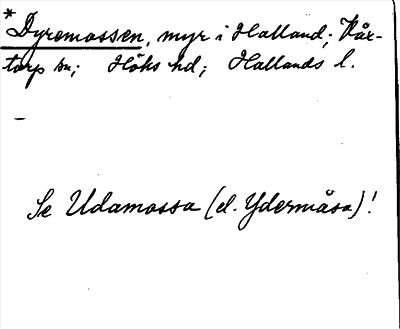 *Dyremossen, myr i Halland; Våx-
torp sn; Höks hd; Hallands l.
–
Se Udamossa (el. Ydermåsa)!